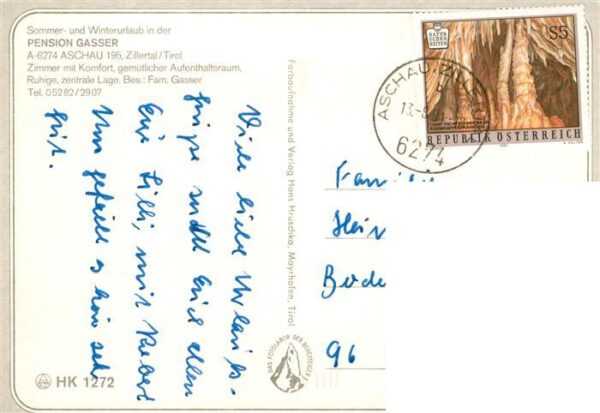 Sommer- und Winterurlaub in der
PENSION GASSER
A-6274 ASCHAU 195, Zillertal/Tirol
Zimmer mit Komfort, gemütlicher Aufenthaltsraum.
Ruhige, zentrale Lage. Bes.: Fam. Gasser
Tel. 05282/2907
Viele liebe Urlaubs-
grüße sendet Euch allen
Eure Lilli, mit Robert
Uns gefällt es hier sehr
gut.
HK 1272
Farbaufnahme und Verlag Hans Hruschka, Mayrhofen, Tirol
DAS FOTOLABOR DER BERGSTEIGER
NATUR
SCHÖN
HEITEN
S5
REPUBLIK ÖSTERREICH
ASCHAU-ZILLERT
6274
Famili
Hein
Bode
96